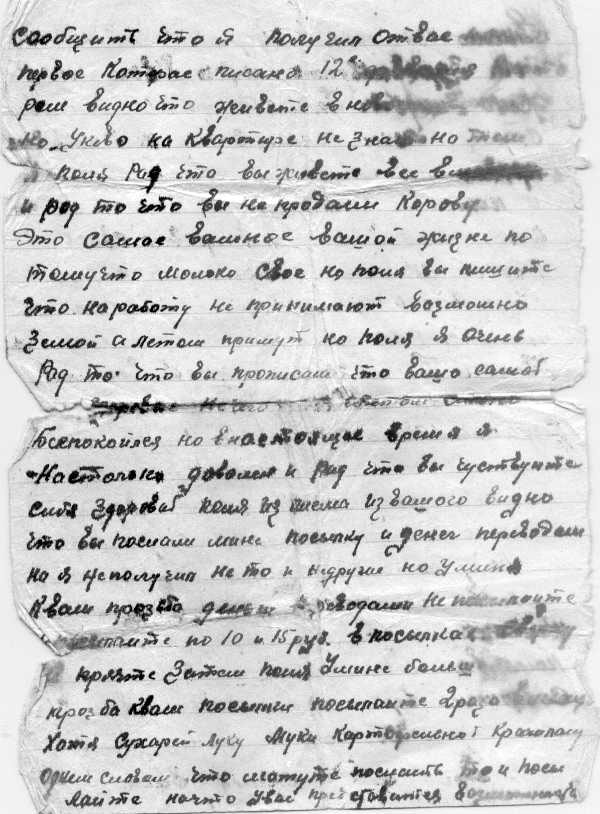 сообщить что я получил от вас
первое которае писано 12
реле видно что живете в нов
но укево на квартире не знаю но
поля рад что вы живете все
и рад то что вы не продали корову
Это самое важное вашой жизне по
томучто молоко свое но поля вы пишите
что на работу не принимают возможно
земой а летом примут но поля я очень
рад то что вы прописали что ваше самоё
здоровье ничего я об этом
Беспокойлся но внастоящае время я
настолько доволен и рад что вы чуствуите
себя здоровыё поля из писма из вашого видно
что вы послали мине посылку и денег переводали
но я не получил не то и не другие но у миня
к вам прозьба деньги реводами не посылаите
сылаите по 10 и 15 руб. в посылках
прячте Затем поля у мине больш
прозба квам посылки посылаите 2 раза
Хотя сухарей луку муки картофельной крахмалу
одним словом что могуте послать то и посы
лайте начто у вас предоставится возможность